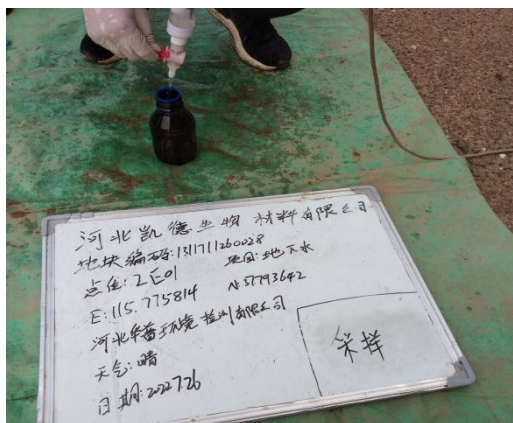 河北凯德生物材料有限公司
地块编码:1311711260028
点位:2E01 项目:地下水
E:115.775814 N:37.793642
河北华普环境检测有限公司
天气:晴
日期:2022.7.26
采样